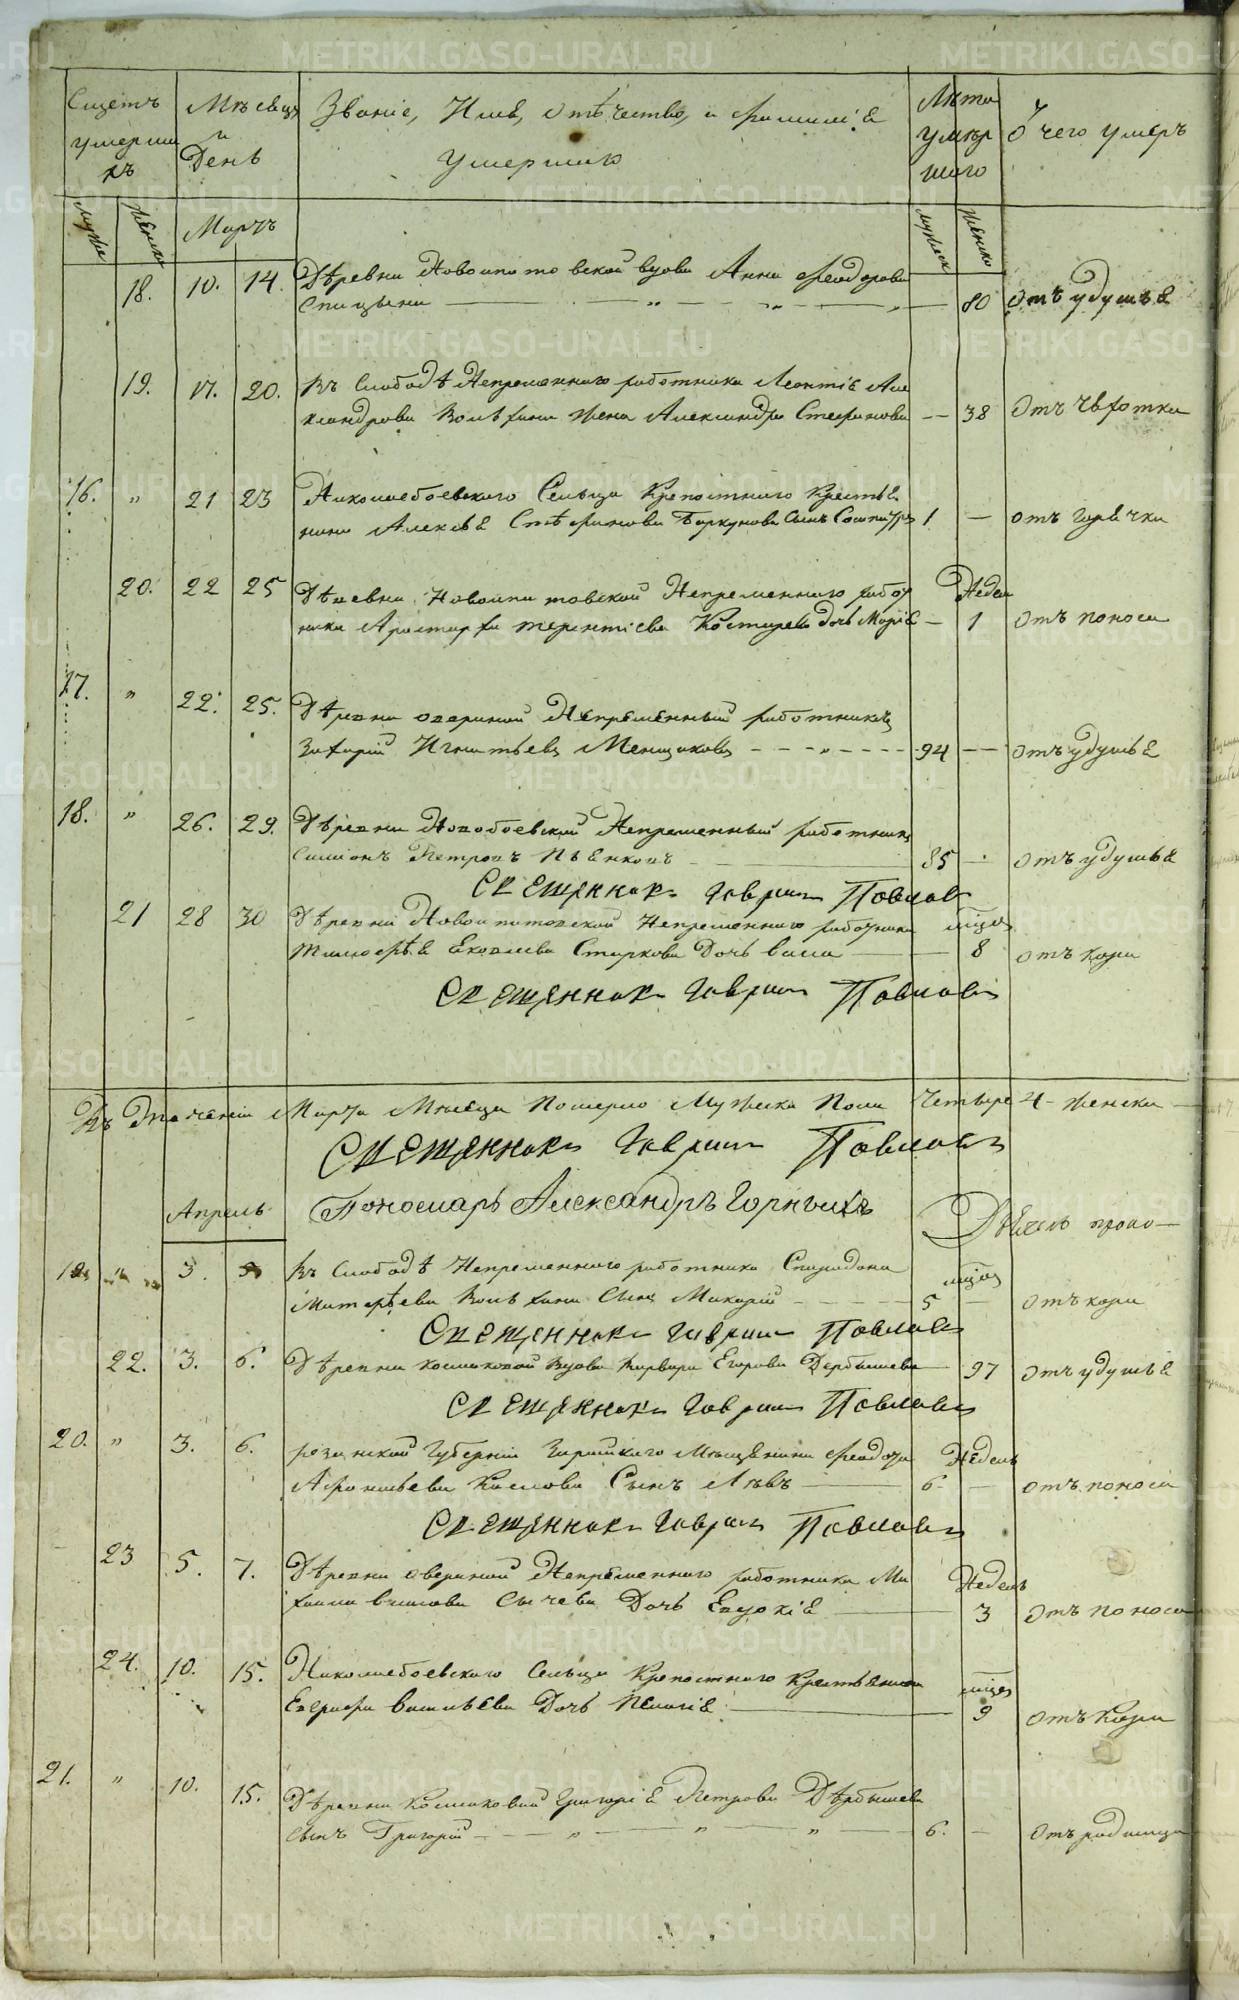 Счетъ умерши хъ
Мѣсяцъ и День
Званіе, Имя, Отѣчество, и фамиліѧ
умершихъ
Лѣта умѣршаго
О чего умеръ
муже
женска
Мартъ
мужеск
женско
18. 10. 14. Дѣревни Новоипатовской вдова Анна Феодорова
Спицына — 80 отъ удушьѧ
19. 17. 20. Въ Слободѣ Непременнаго работника Леонтіѧ Але
ксандрова Волѣхина жена Александра Стефанова — 38 отъ чѣхотки
16. " 21 23 Николаебоевскаго Сельца Крепостнаго Крестьѧ
нина Алексѣѧ Стѣфанова Сынъ 1 — отъ горячки
20. 22 25 Дѣревни Новоипатовской Непременнаго работ
Недел
ника Аристарха терентіева Костарева дочь Маріѧ — 1 отъ поноса
17. " 22. 25. Дѣревни овериной Непременный работникъ
Захарій Игнатьевъ Менщиковъ — " — 94 — отъ удушьѧ
18. " 26. 29. Дѣревни Новобоевской Непременный работникъ
Симіонъ Петровъ Пьѧнковъ — 85 — отъ удушьѧ
Священникъ Гавриилъ Павловъ
21 28 30 Дѣревни Новоипатовской Непременнаго работника
мѣсяц
Тимофѣѧ Ековлева Старкова Дочь — 8 отъ кори
Священникъ Гавриилъ Павловъ
Въ Теченіи Марта Мѣсяца Померло Мужеска Пола Четыре 4 - женска
Священникъ Гавриилъ Павловъ
Апрель
Пономарь Александръ Горныхъ
Дьѧчекъ
19 3. 5 Въ Слободѣ Непременнаго работника Спиридона
мѣсяц
Матфѣева Волѣхина Сынъ Макарій — 5 — отъ кори
Священникъ Гавриилъ Павловъ
22. 3. 6. Дѣревни космаковой Вдова Варвара Егорова Дербышева — 97 отъ удушьѧ
Священникъ Гавриилъ Павловъ
20. " 3. 6. резанской Губерніи Зарайскаго Мѣщѧнина Феодора
Недель
Афонасьева Сынъ Львъ — 6. — отъ поноса
Священникъ Гавриилъ Павловъ
23 5. 7. Дѣревни овериной Непременнаго работника Ми
Недель
хаила Сычева Дочь Евдокіѧ — 3 отъ поноса
24. 10. 15. Николаебоевскаго Сельца Крепостнаго Крестьѧнина
мѣсяц
Евграфа васильева Дочь Пелагіѧ — 9 отъ Кори
21. " 10. 15. Дѣревни Космаковой Григоріѧ Петрова Дѣрбышева
сынъ Григорій — " — " — " — 6. — отъ родимца
METRIKI.GASO-URAL.RU